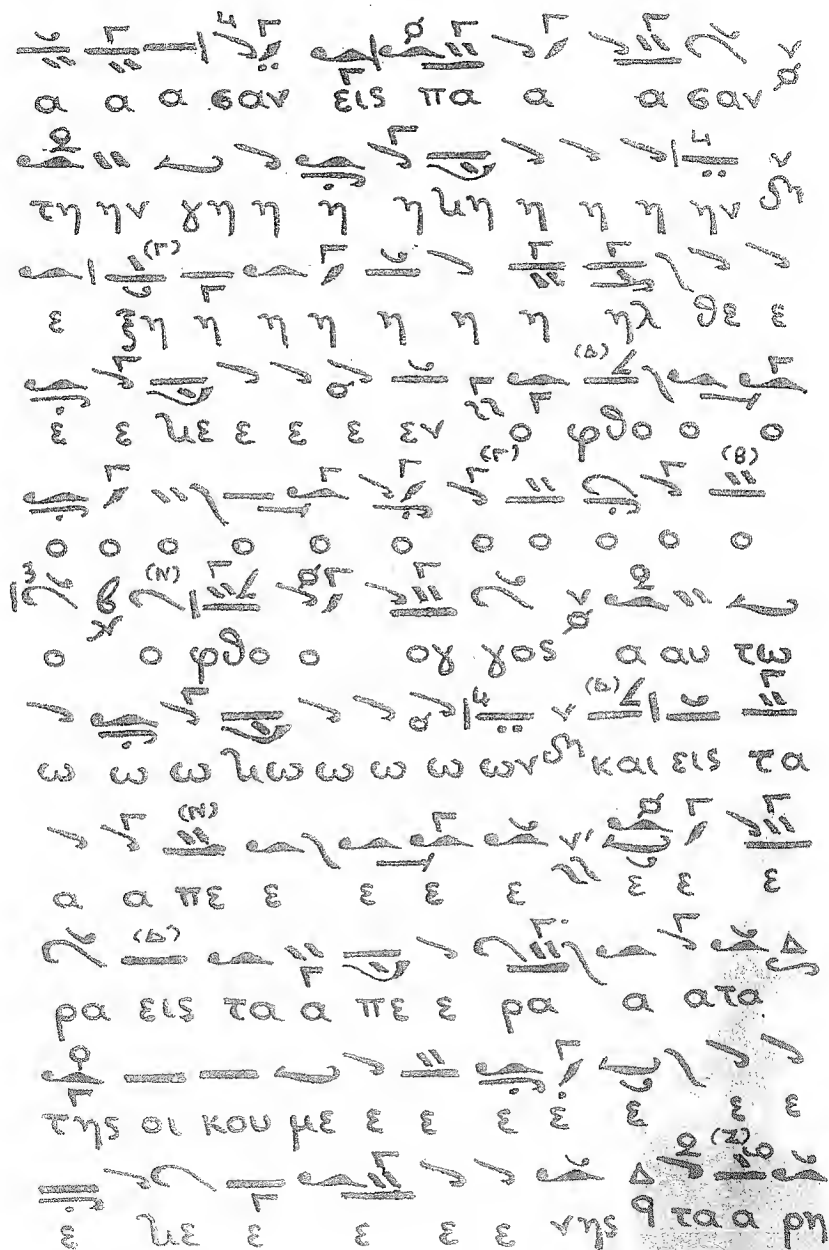 α α α σαν εις πα α α σαν
τη ην γη η η η κη η η η ην
ε ξη η η η η η η ηλ θε ε
ε ε κε ε ε ε εν ο φθο ο ο
ο ο ο ο ο ο ο ο ο ο ο
ο ο φθο ο ογ γος α αυ τω
ω ω ω κω ω ω ω ων και εις τα
α α πε ε ε ε ε ε ε ε
ρα εις τα α πε ε ρα α ατα
της οι κου με ε ε ε ε ε ε ε
ε κε ε ε ε ε νης τα α ρη